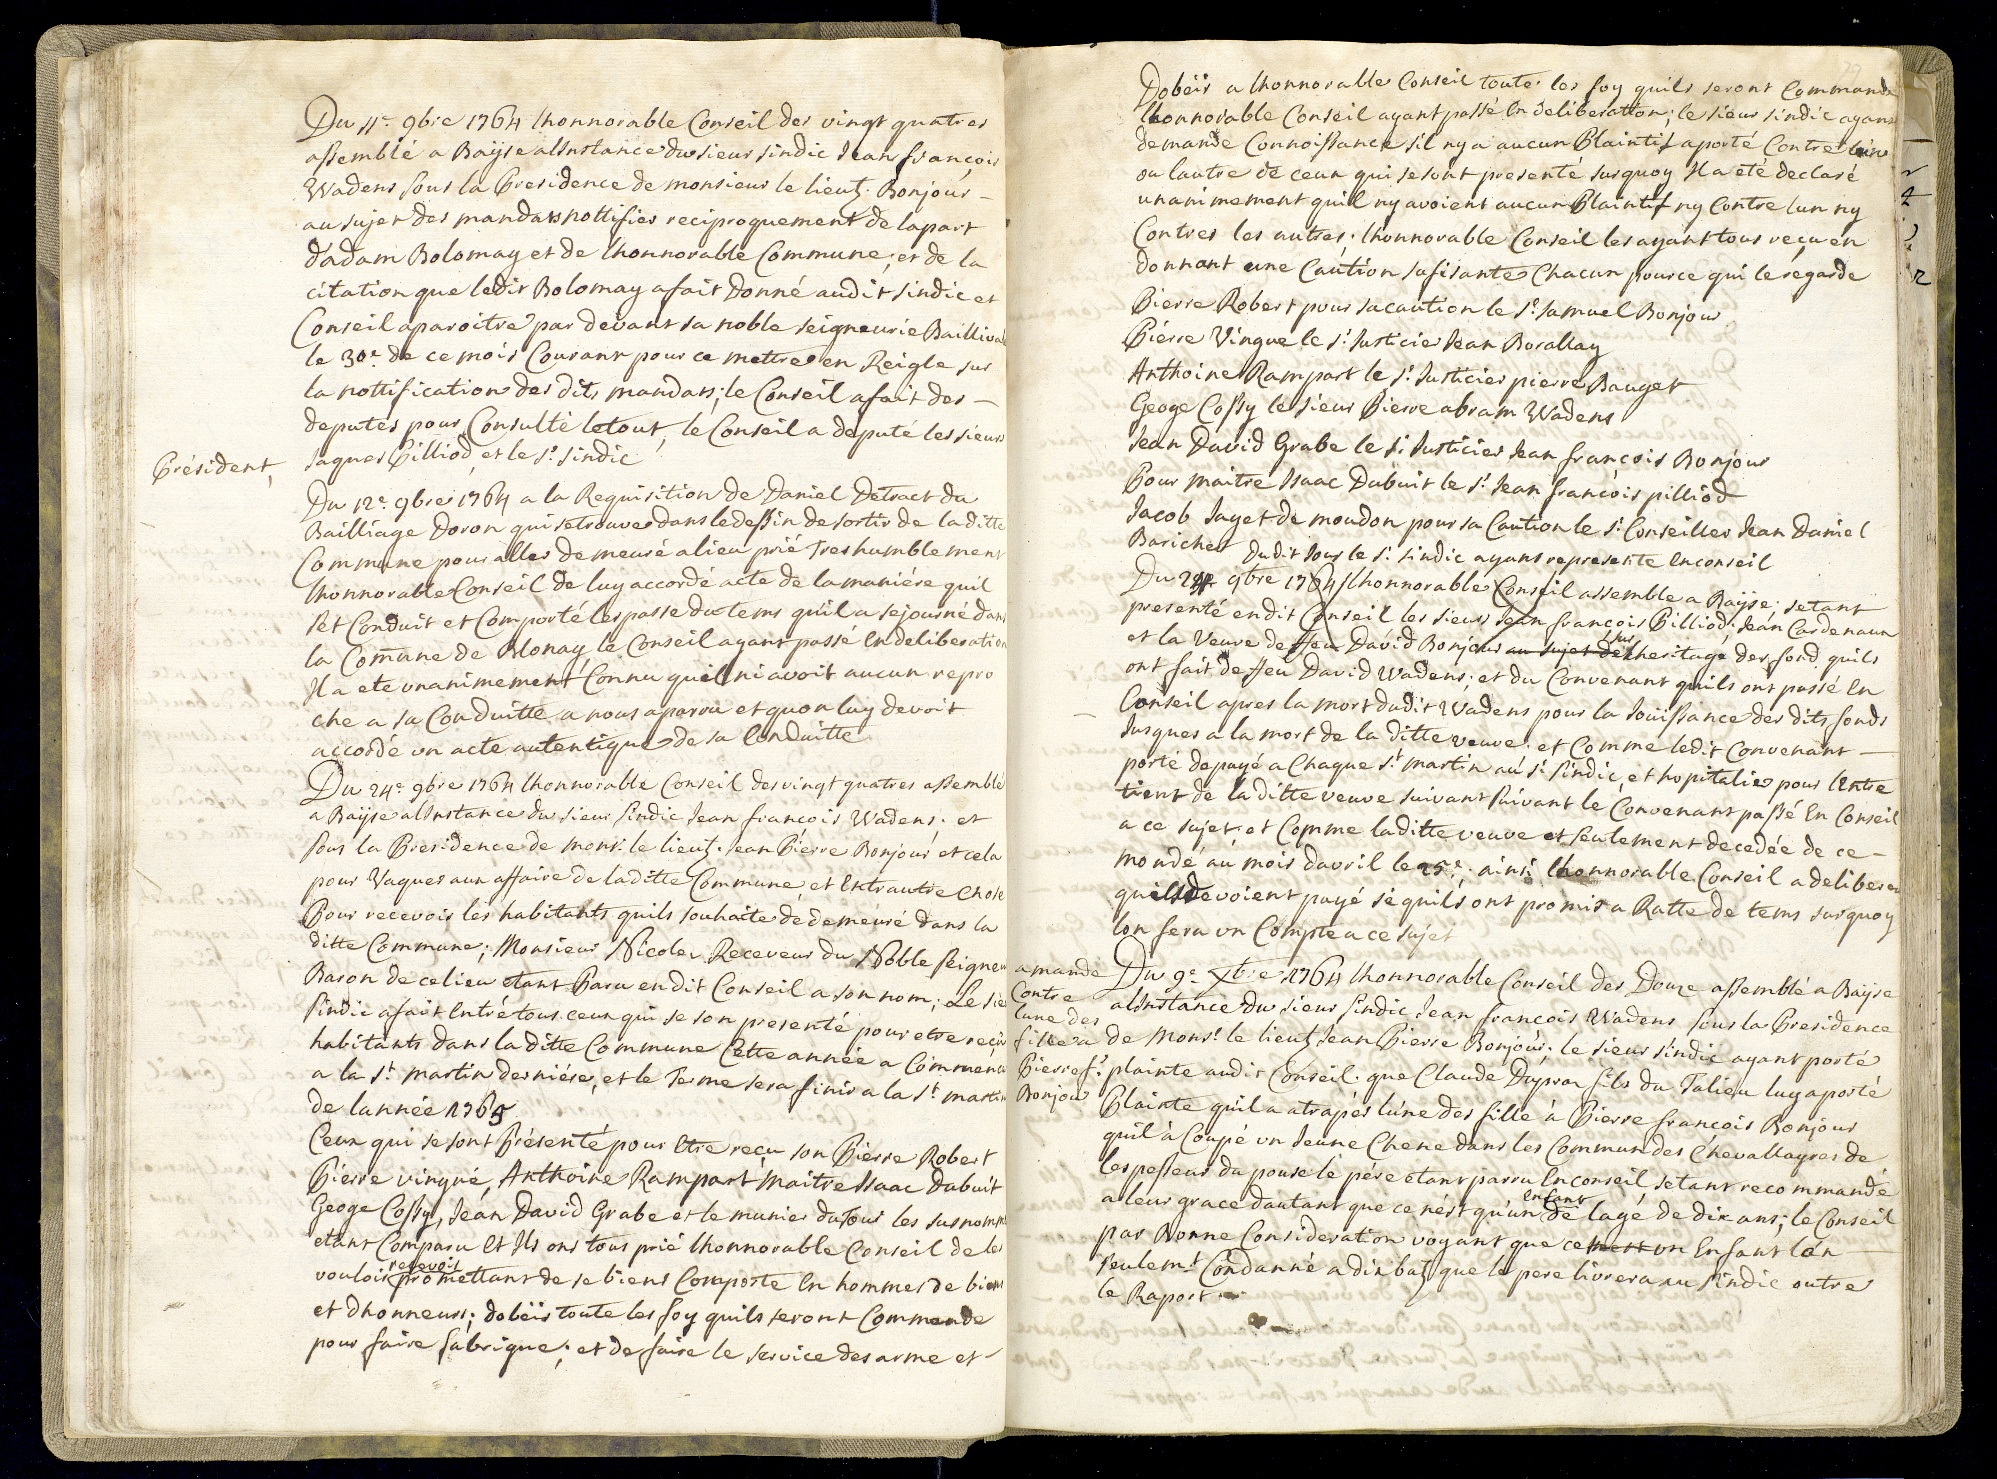 Du 11e. 9bre 1764 lhonnorable Conseil des vingt quatres
assemblé a Baÿse alinstance du sieur sindic Jean françois
Wadens sous la Presidence de monsieur le lieut. Bonjour
au sujet des mandats nottifies reciproquement de la part
dadam Bolomay et de lhonnorable Commune, et de la
citation que ledit Bolomay a fait Donné audit sindic et
Conseil aparoitre par devant sa noble seigneurie Baillivale
le 30e de ce mois Courant pour ce mettre en Reigle sur
la nottification des dits mandats; le Conseil a fait des
deputés pour Consulté letout, le Conseil a deputé les sieurs
Président, Jaques Pilliod et le sr. sindic
Du 12e. 9bre 1764 a la Requisition de Daniel Detract du
Bailliage Doron qui setrouve dans le dessin de sortir de la ditte
Commune pour aller demeuré alieu prié Treshumblement
lhonnorable Conseil de luy accordé acte de la maniére quil
set Conduit et Comporté lespasse du tems qu'il a sejourné dans
la Comune de Blonay le Conseil ayant passé En deliberation
Il a ete unanimement Connu quil ni avoit aucun repro
che a sa Conduitte a nous aparru et quon luy devoit
accordé un acte autentique de sa Conduitte
Du 24e. 9bre 1764 lhonnorable Conseil des vingt quatres assemblé
a Baÿse alinstance du sieur sindic Jean françois Wadens. et
sous la Presidence de monsr. le lieut. Jean Piérre Bonjour et cela
pour Vaquer aux affaire de la ditte Commune et Entrautre Chose
Pour recevoir les habitants quils souhaite de demeuré dans la
ditte Commune; Monsieur Nicoler Receveur du Noble seigneur
Baron de ce lieu etant Paru en dit Conseil a son nom; Le sie
sindic a fait Entré tous ceux qui se son presenté pour etre reçu
habitants dans la ditte Commune Cette année a Commencé
a la st. martin derniére, et le Terme sera finir a la st. martin
de lannée 1765
Ceux qui se sont Présenté pour Etre reçu son Pierre Robert
Piérre vinqué, Anthoine Rampart maitre Isaac Dubuit
Geoge Cossy, Jean David Grabe et le munier du Tour les susnommé
etant Comparu Et Ils ons tous prié lhonnorable Conseil de les
vouloir recevoir promettant de se biens Comporte En hommes de biens
et dhonneurs; dobéir toute les foy quils seront Commende
pour faire fabrique; et de faire le service des arme et
Dobéir a lhonnorable Conseil toute les foy quils seront Commande
lhonnorable Conseil ayant passé En deliberation; le sieur sindic ayant
demande Connoissance sil ny a aucun Plaintif aporté Contre lun
ou lautre de ceux qui se sont presenté surquoy Il a eté declaré
unanimement quil ny avoient aucun Plaintif ny Contre lun ny
Contres les autres; lhonnorable Conseil les ayant tous reçu en
donnant une Caution sufisante Chacun pource qui le regarde
Pierre Robert pour sa caution le sr. Samuel Bonjour
Piérre Vinque le sr. Justicier Jean Borallay
Anthoine Rampart le sr. Justicier pierre Bauget
Geoge Cossy le sieur Pierre abram Wadens
Jean David Grabe le sr. Justicier Jean françois Bonjour
Pour maitre Isaac Dubuit le sr. Jean françois pilliod
Jacob Jayet de moudon pour sa Caution le sr. Conseiller Jean Daniel
Bariches dudit Jour le sr. sindic ayans represente En conseil
Du 9bre 1764 lhonnorable Conseil assemble a Baÿse; setant
presenté endit Conseil les sieurs Jean françois Pilliod. Jean Cardenaux
et la Veuve de feu David Bonjour au sujet de sus lheritage des fond quils
ont fait de feu David Wadens; et du Convenant quils ont passé En
Conseil apres la mort dudit Wadens pour la Joüissance des dits fonds
Jusques a la mort de la ditte veuve. et Comme ledit Convenant
porté depayé a Chaque st. martin au sr. sindic et hopitalier pour lEntre
tient de la ditte veuve suivant suivant le Convenant passé En Conseil
a ce sujet. et Comme laditte veuve et seulement decedée de ce
monde au mois davril le 25e. ainsi lhonnorable Conseil a deliberer
quils devoient payé se quils ont promis a Ratte de tems surquoy
lon fera un Compte a ce sujet
amande
Contre
lune des
fille a
Pierre f.
Bonjour
Du 9e. Xbre 1764 lhonnorable Conseil des Douze assemblé a Baÿse
alinstance du sieur sindic Jean françois Wadens sous la Presidence
de Monsr. le lieut. Jean Piérre Bonjour; le sieur sindic ayant porté
plainte audit Conseil. que Claude Dupra fils du Talieu luy a porté
Plainte quil a atrapér lune des fille à Pierre françois Bonjour
quil à Coupé un Jeune Chene dans les Commun des Chevallayres de
lespesseur du pouse le pére etant parru En conseil setant recommandé
a leur grace dautant que ce nést qu'un Enfant de lagé de dix ans; le Conseil
par Bonne Consideration voyant que ce nest un Enfant lon
seulemt. Condanné a dix batz que le pere livrera au sindic outre
le Raport